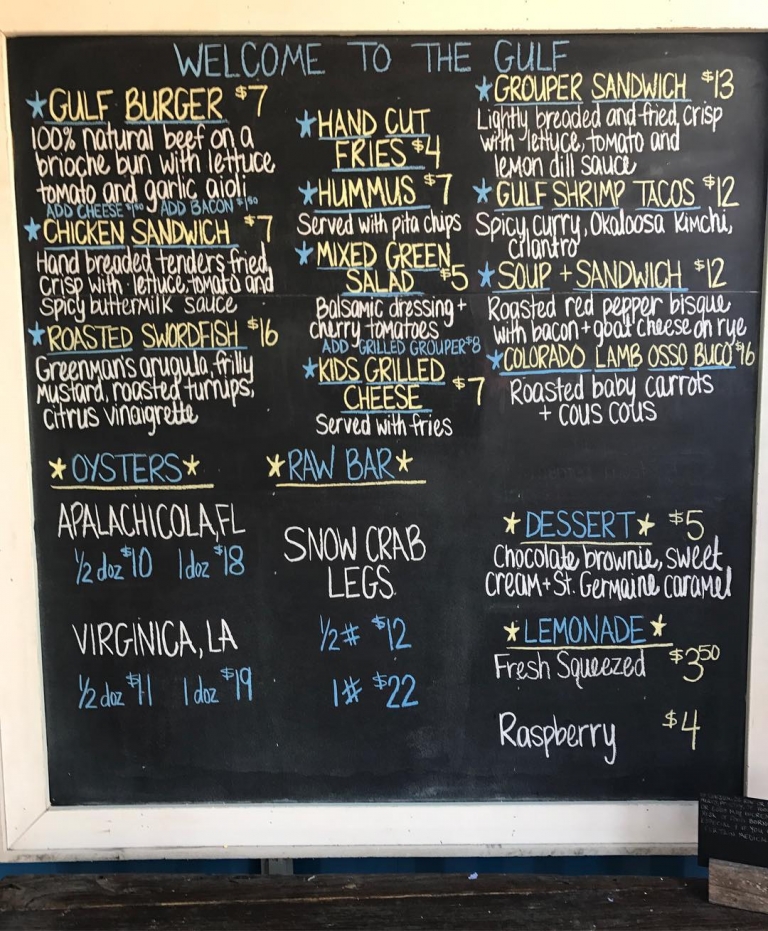 WELCOME TO THE GULF
★GULF BURGER $7
100% natural beef on a
brioche bun with lettuce
tomato and garlic aioli
ADD CHEESE $1.50 ADD BACON $1.50
★CHICKEN SANDWICH $7
Hand breaded tenders fried
crisp with lettuce, tomato and
spicy buttermilk sauce
★ROASTED SWORDFISH $16
Greenman's arugula, frilly
mustard, roasted turnups,
citrus vinaigrette
★HAND CUT
FRIES $4
★HUMMUS $7
Served with pita chips
★MIXED GREEN
SALAD $5
Balsamic dressing +
cherry tomatoes
ADD GRILLED GROUPER $8
★KIDS GRILLED
CHEESE $7
Served with fries
★GROUPER SANDWICH $13
Lightly breaded and fried crisp
with lettuce, tomato and
lemon dill sauce
★GULF SHRIMP TACOS $12
Spicy curry, Okaloosa Kimchi,
cilantro
★SOUP + SANDWICH $12
Roasted red pepper bisque
with bacon + goat cheese on rye
★COLORADO LAMB OSSO BUCO $16
Roasted baby carrots
+ COUS COUS
★OYSTERS★
APALACHICOLA, FL
1/2 doz $10 1 doz $18
VIRGINICA, LA
1/2 doz $11 1 doz $19
★RAW BAR★
SNOW CRAB
LEGS
1/2# $12
1# $22
★DESSERT★ $5
Chocolate brownie, sweet
cream + St. Germaine caramel
★LEMONADE★
Fresh Squeezed $3.50
Raspberry $4